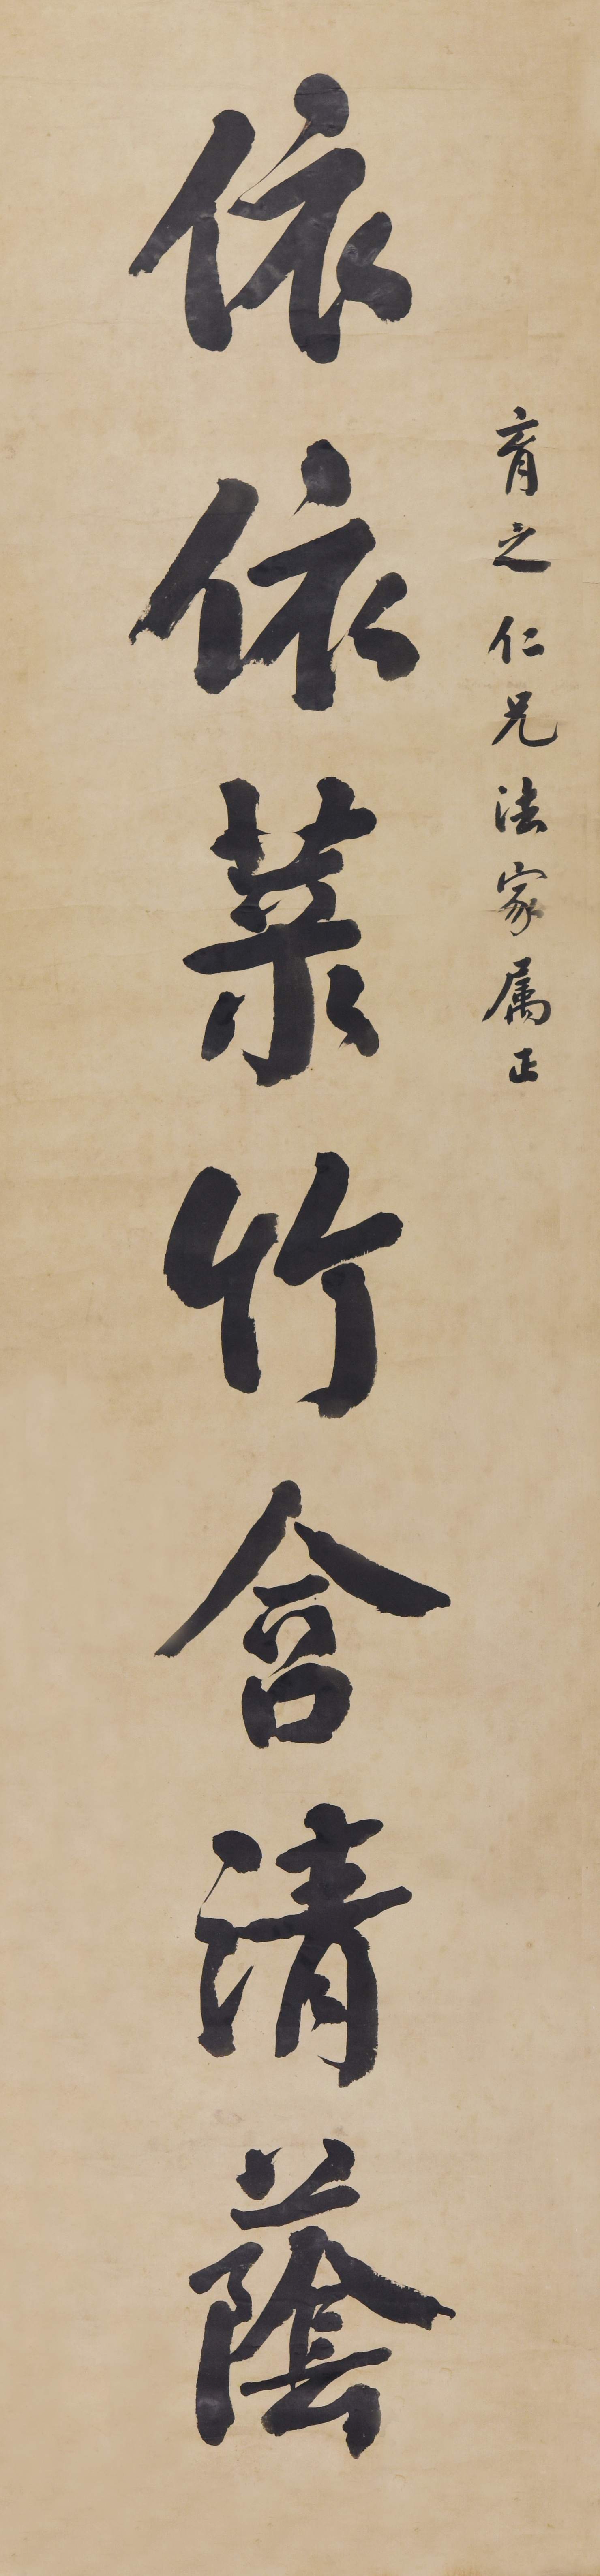 育之仁兄法家属正
依依菉竹含清蔭